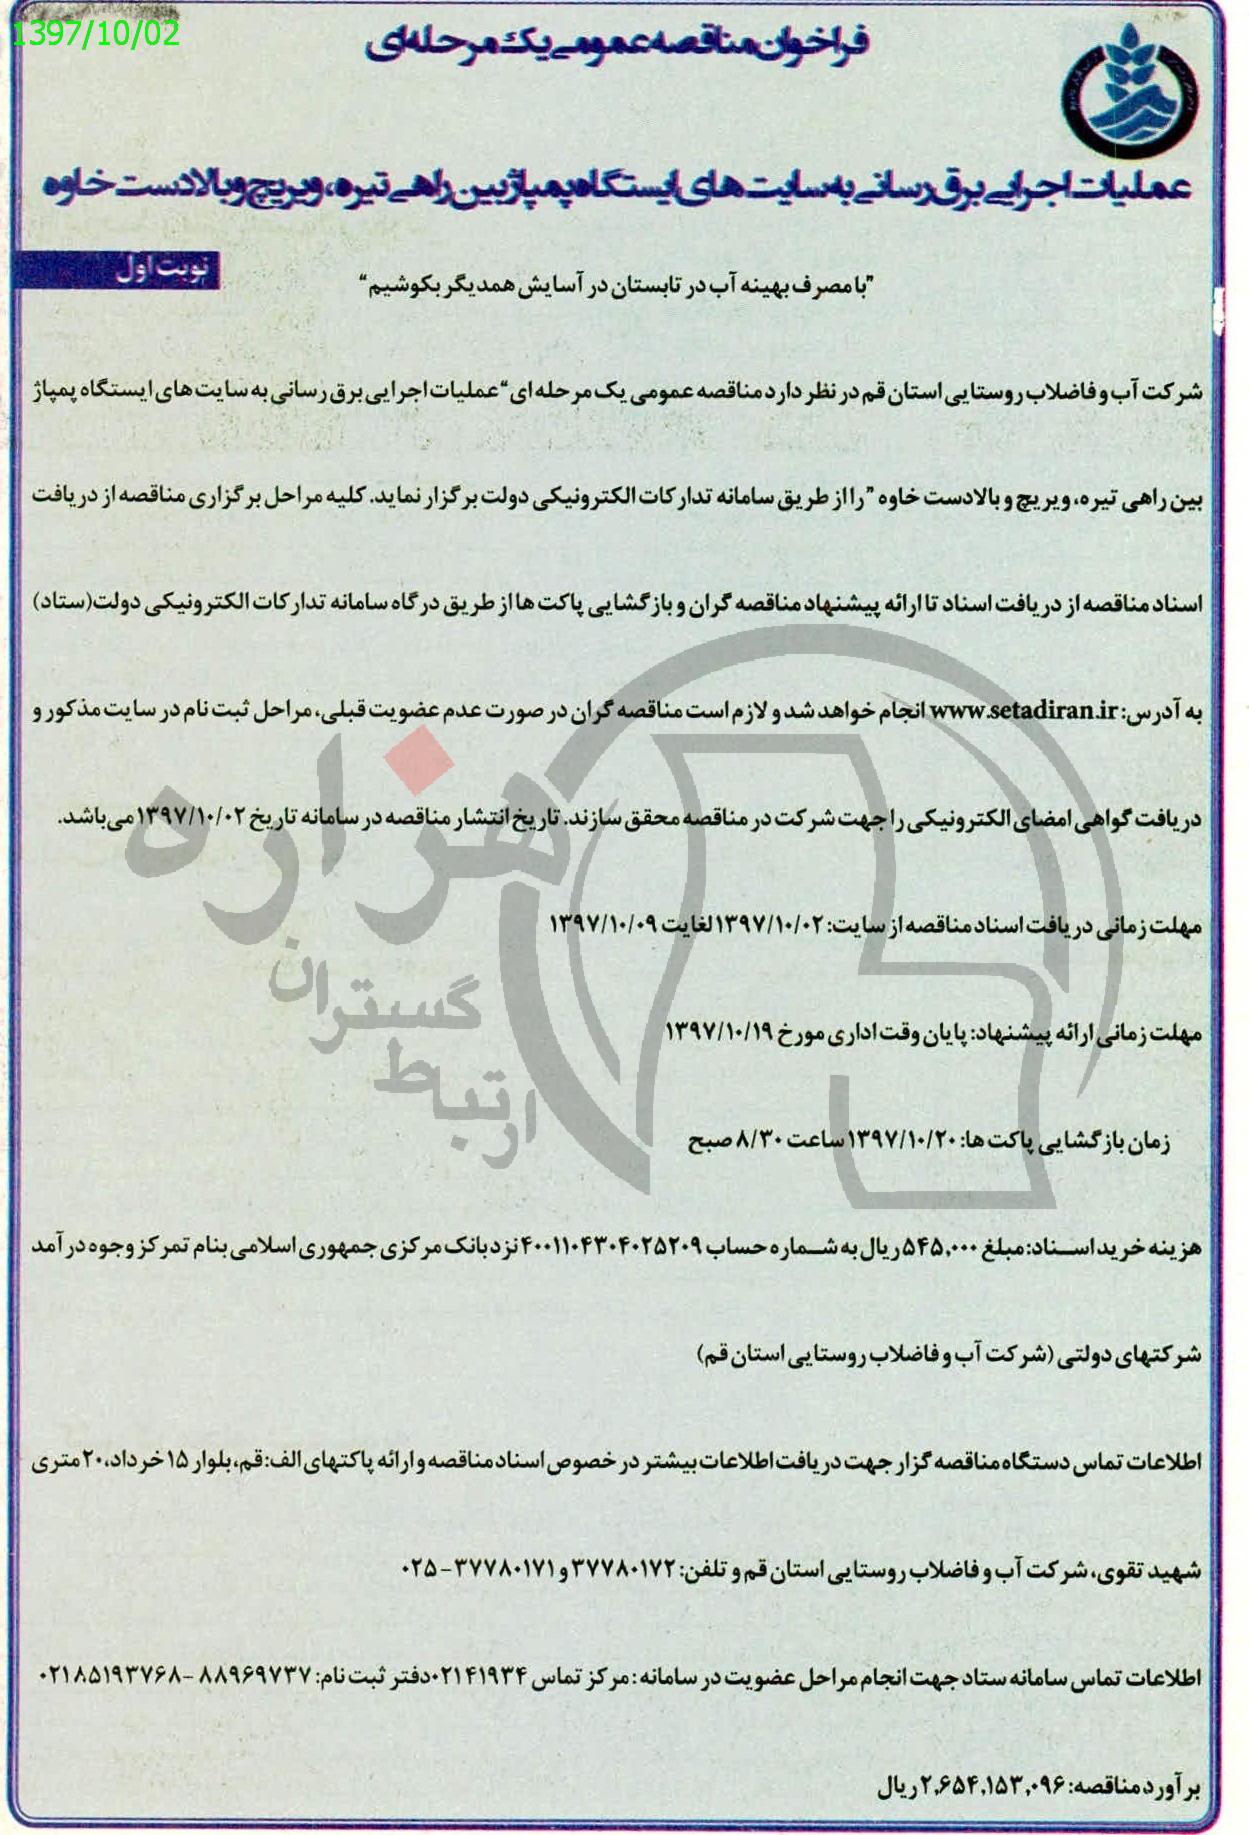 1397/10/02
فراخوان مناقصه عمومی یک مرحله‌ای
عملیات اجرایی برق رسانی به سایت های ایستگاه پمپاژ بین راهی تیره، ویریچ و بالادست خاوه
نوبت اول
"با مصرف بهینه آب در تابستان در آسایش همدیگر بکوشیم"
شرکت آب و فاضلاب روستایی استان قم در نظر دارد مناقصه عمومی یک مرحله ای "عملیات اجرایی برق رسانی به سایت های ایستگاه پمپاژ
بین راهی تیره، ویریچ و بالادست خاوه" را از طریق سامانه تدارکات الکترونیکی دولت برگزار نماید. کلیه مراحل برگزاری مناقصه از دریافت
اسناد مناقصه از دریافت اسناد تا ارائه پیشنهاد مناقصه گران و بازگشایی پاکت ها از طریق درگاه سامانه تدارکات الکترونیکی دولت (ستاد)
به آدرس: www.setadiran.ir انجام خواهد شد و لازم است مناقصه گران در صورت عدم عضویت قبلی، مراحل ثبت نام در سایت مذکور و
دریافت گواهی امضای الکترونیکی را جهت شرکت در مناقصه محقق سازند. تاریخ انتشار مناقصه در سامانه تاریخ ۱۳۹۷/۱۰/۰۲ می باشد.
مهلت زمانی دریافت اسناد مناقصه از سایت: ۱۳۹۷/۱۰/۰۲ لغایت ۱۳۹۷/۱۰/۰۹
مهلت زمانی ارائه پیشنهاد: پایان وقت اداری مورخ ۱۳۹۷/۱۰/۱۹
زمان بازگشایی پاکت ها: ۱۳۹۷/۱۰/۲۰ ساعت ۸/۳۰ صبح
هزینه خرید اسناد: مبلغ ۵۴۵,۰۰۰ ریال به شماره حساب ۴۰۰۱۱۰۴۳۰۴۰۲۵۲۰۹ نزد بانک مرکزی جمهوری اسلامی بنام تمرکز وجوه درآمد
شرکتهای دولتی (شرکت آب و فاضلاب روستایی استان قم)
اطلاعات تماس دستگاه مناقصه گزار جهت دریافت اطلاعات بیشتر در خصوص اسناد مناقصه و ارائه پاکتهای الف: قم، بلوار ۱۵ خرداد، ۲۰ متری
شهید تقوی، شرکت آب و فاضلاب روستایی استان قم و تلفن: ۳۷۷۸۰۱۷۲ و ۳۷۷۸۰۱۷۱-۰۲۵
اطلاعات تماس سامانه ستاد جهت انجام مراحل عضویت در سامانه: مرکز تماس ۰۲۱۴۱۹۳۴ دفتر ثبت نام: ۸۸۹۶۹۷۳۷ - ۰۲۱۸۵۱۹۳۷۶۸
برآورد مناقصه: ۲,۶۵۴,۱۵۳,۰۹۶ ریال
هزاره
گستران
ارتباط